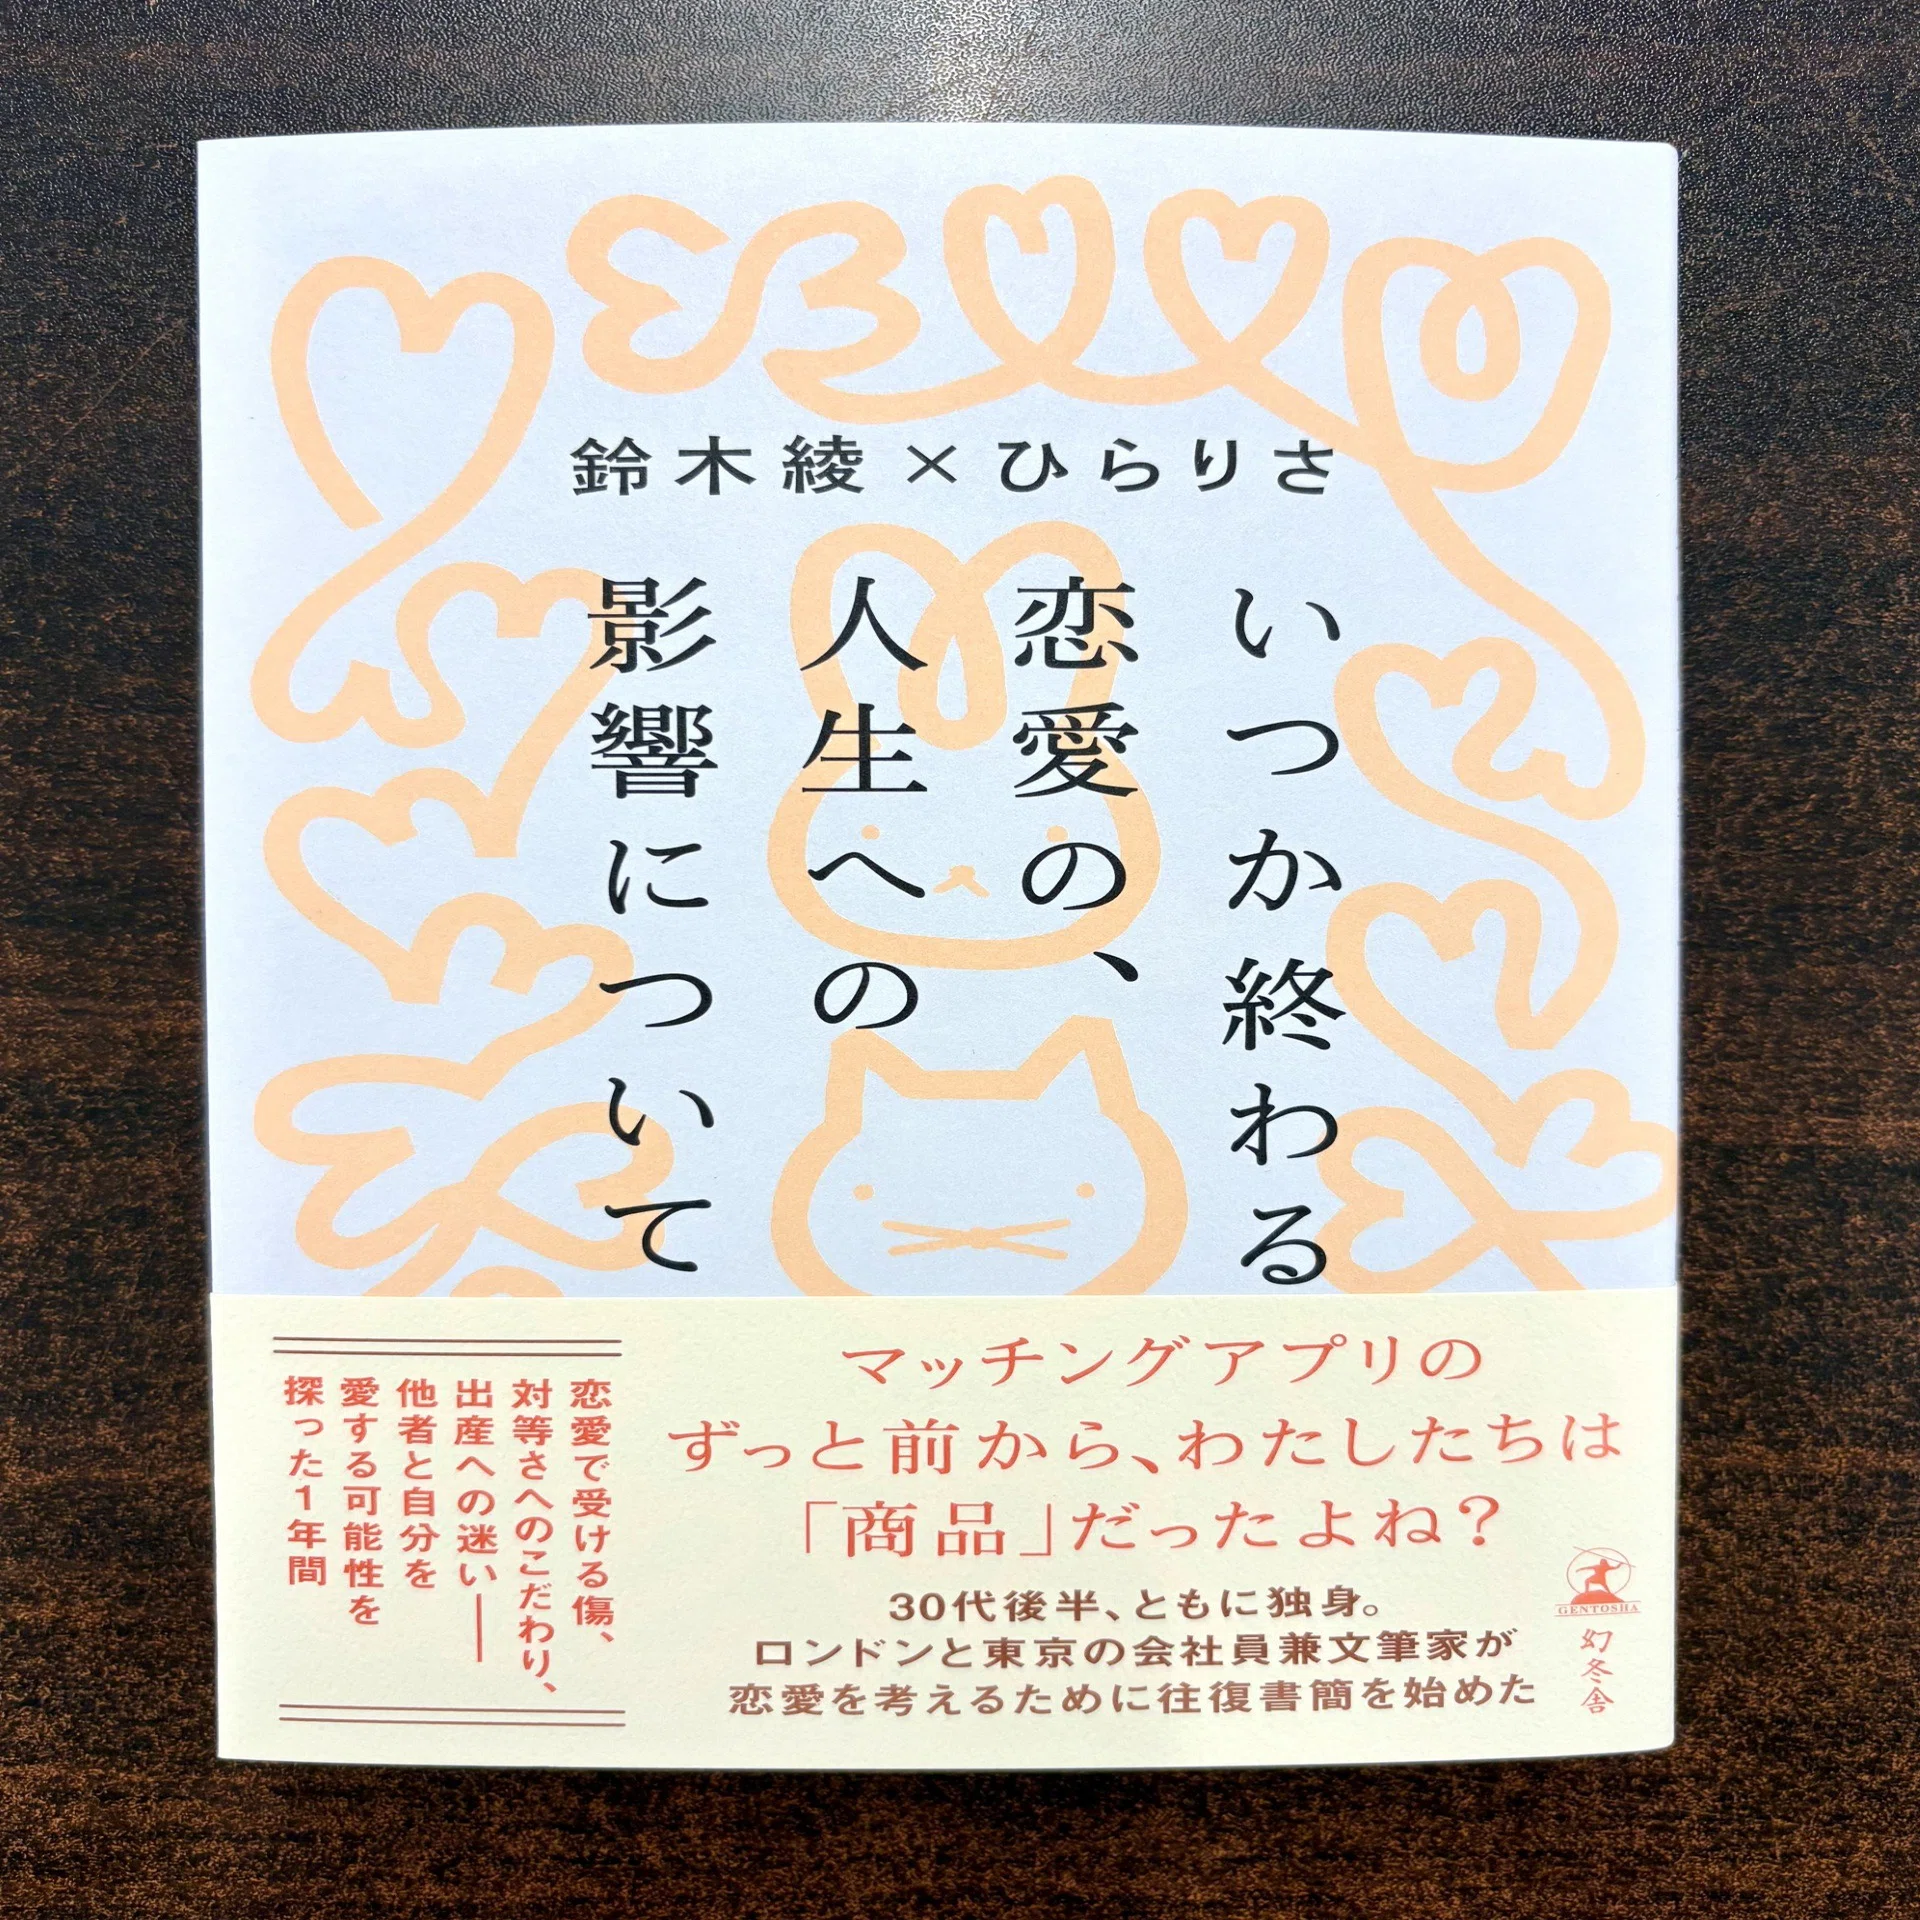 鈴木綾×ひらりさ
いつか終わる
恋愛の、
人生への
影響について
マッチングアプリの
ずっと前から、わたしたちは
「商品」だったよね?
30代後半、ともに独身。
ロンドンと東京の会社員兼文筆家が
恋愛を考えるために往復書簡を始めた
恋愛で受ける傷、
対等さへのこだわり、
出産への迷い——
他者と自分を
愛する可能性を
探った1年間
GENTOSHA
幻冬舎